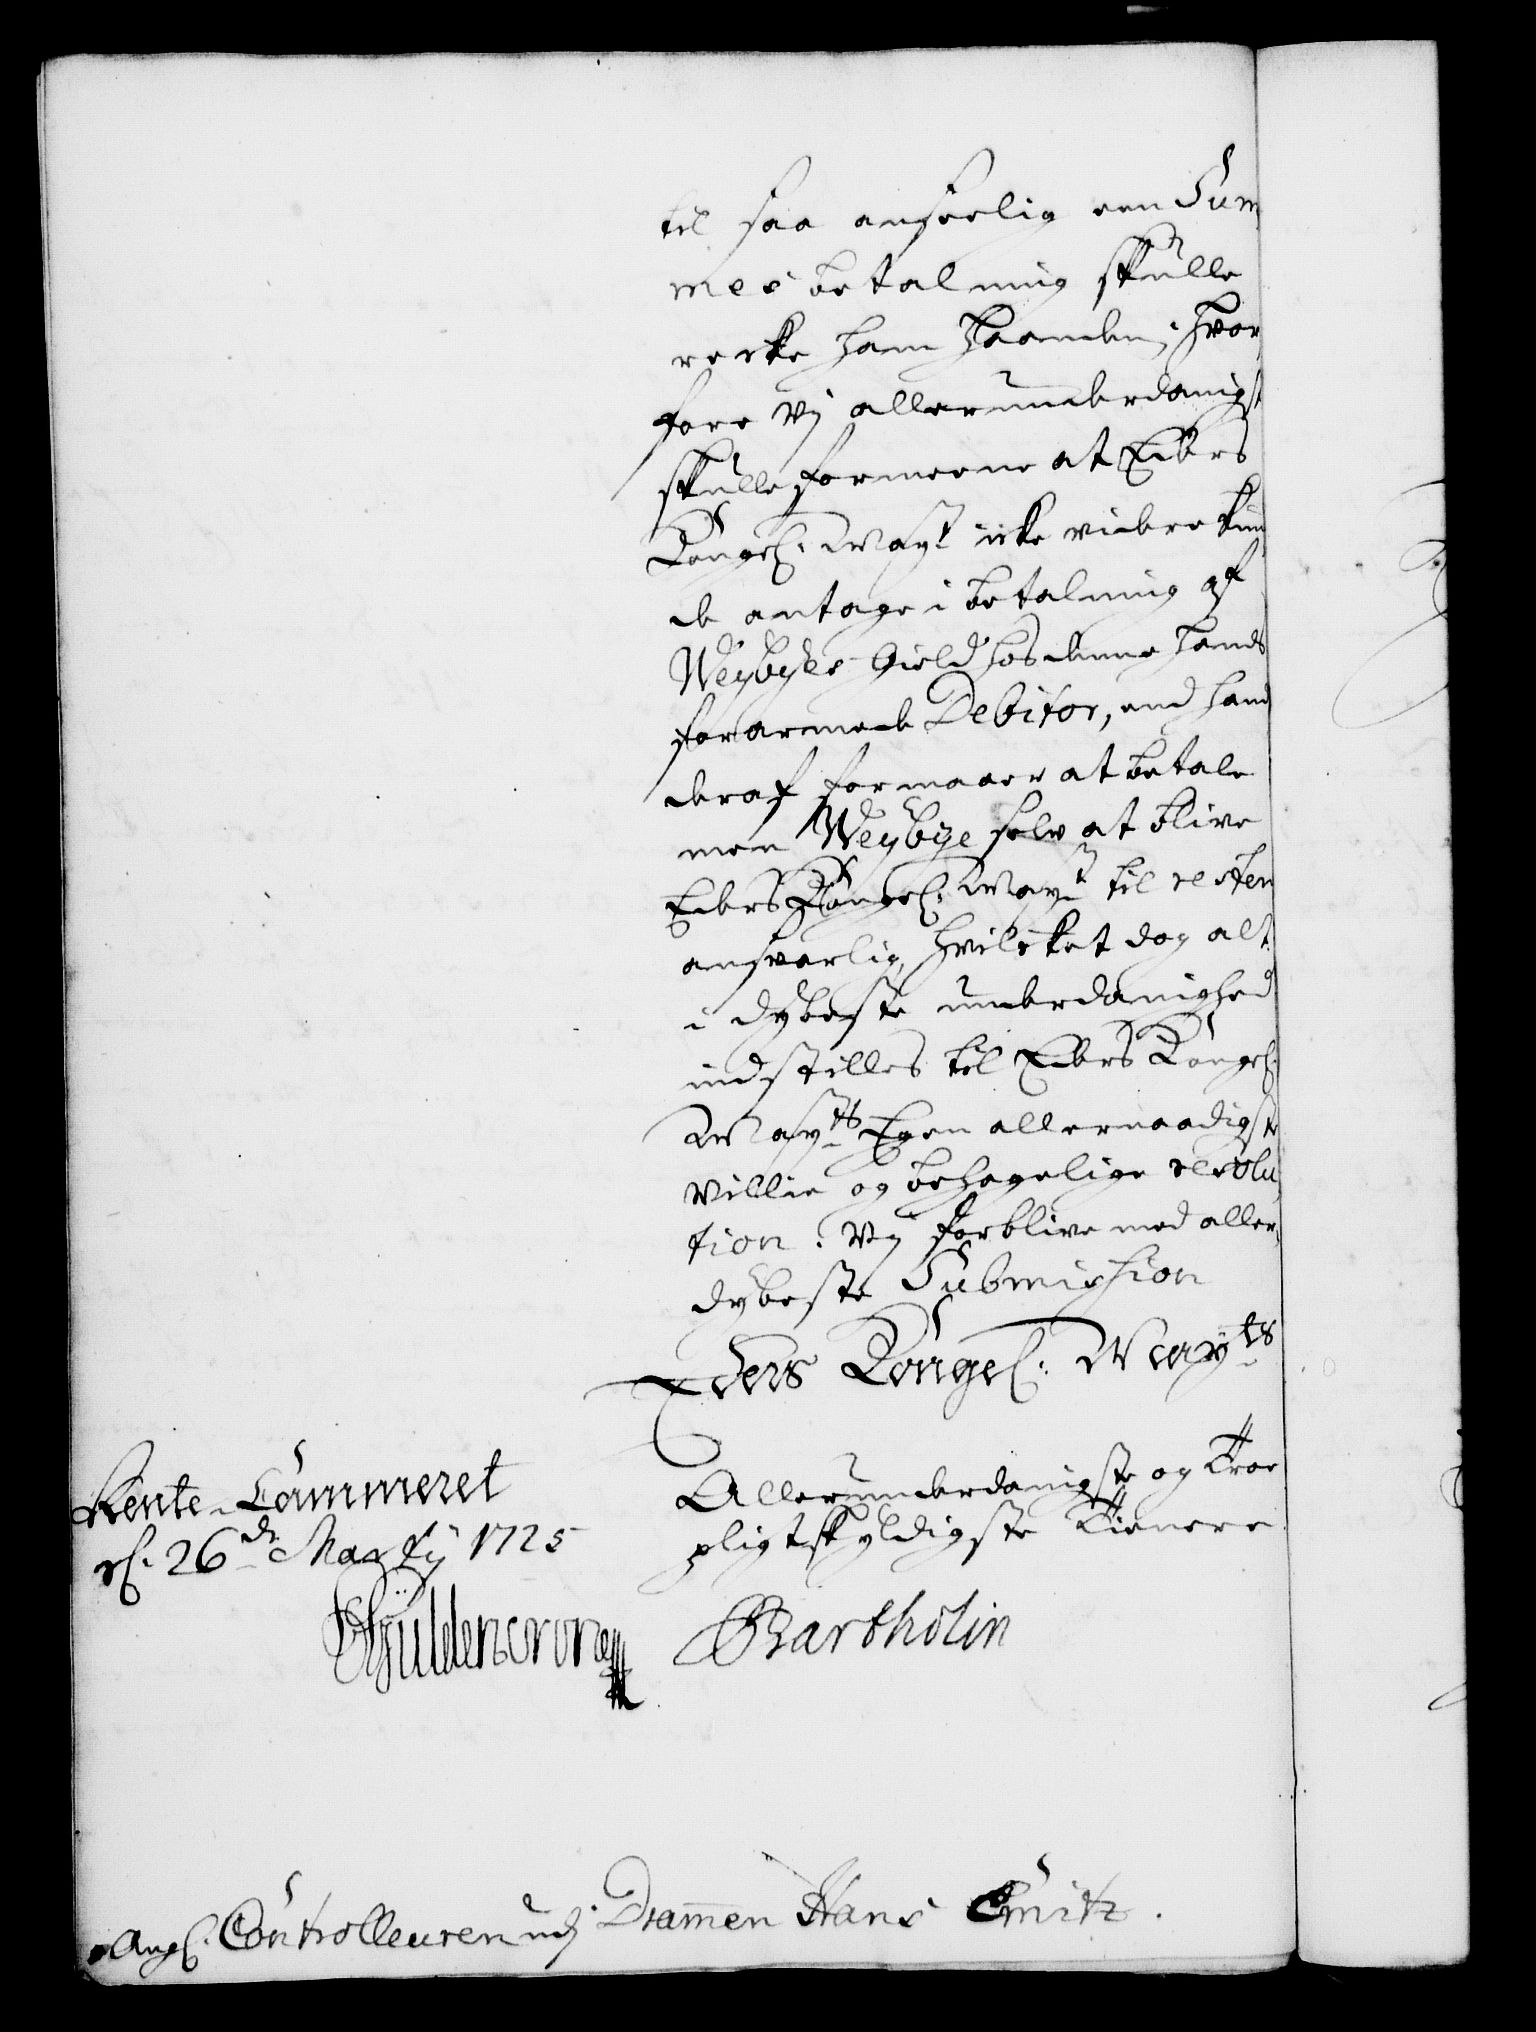 til saa anseelig een Sum
mes betalning skulle
recke ham Haanden; hvor
fore Vj allerunderdanigst
skulle formeene at Eders
Kongel: May:t icke videre kun
de antage i betalning af
Weybyes Gield hos denne hands
forarmede Debitor, end hand
deraf formaaer at betale
men Weybye selv at blive
Eders Kongel: May:t til resten
ansvarlig, hvilcket dog alt
i dybeste underdanighed
indstilles til Eders Kongel:
May:ts Egen allernaadigste
Villie og behagelige resolu
tion. Vj forblive med aller,
dybeste Submission
Eders Kongel: May:ts
Allerunderdanigste og Troe
pligtskyldigste Tienere
Rente-Cammeret
d. 26de Martij 1725
Güldencrone
Bartholin
Ang: Controlleuren udj Dramen Hans Smitz.